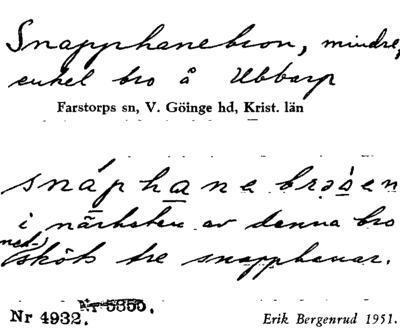 Snapphanebron, mindre,
enkel bro å Ubbarp
Farstorps sn, V. Göinge hd, Krist. län
snápha̲ne brə́ən
i närheten av denna bro
ned-
sköts tre snapphanar.
Nr 5355.
Nr 4932.
Erik Bergenrud 1951.